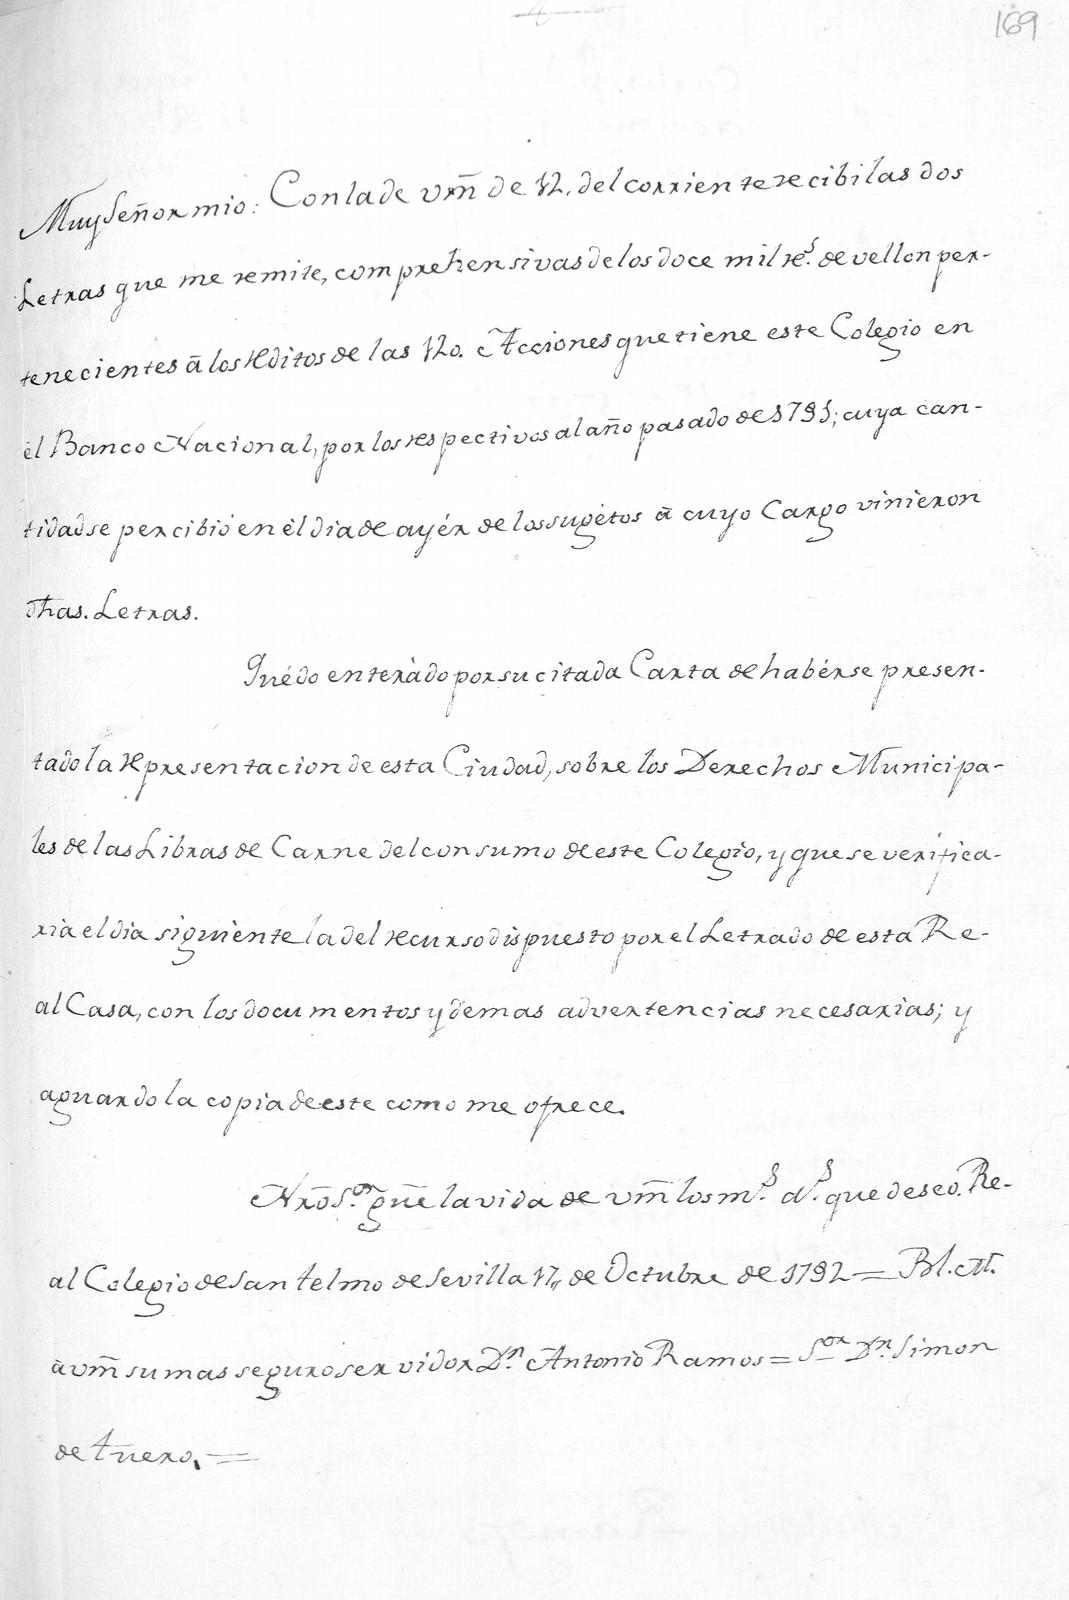 169
Muy Señor mio: Con la de vm̃ de 12. del corriente recibi las dos
Letras que me remite, comprehensivas de los doce mil rs. de vellon per-
tenecientes ā los reditos de las 120. Acciones que tiene este Colegio en
el Banco Nacional, por los respectivos al año pasado de 1791; cuya can-
tidad se percibió en èl dia de ayér de los sugétos ā cuyo Cargo vinieron
dhas. Letras.
Quédo enteràdo por su citada Carta de habérse presen-
tado la representacion de esta Ciudad, sobre los Derechos Municipa-
les de las Libras de Carne del consumo de este Colegio, y que se verifica-
ria el dia siguiente la del recurso dispuesto por el Letrado de esta Re-
al Casa, con los documentos y demas advertencias necesarias; y
aguardo la copia de este como me ofrece.
Nrõ Sor. gūe la vida de vm̃ los ms. as. que deseo. Re-
al Colegio de San telmo de Sevilla 17,, de Octubre de 1792 = Bl. M.
à vm̃ su mas seguro servidor Dn. Antonio Ramos = Sor Dn. Simon
de tuero. =